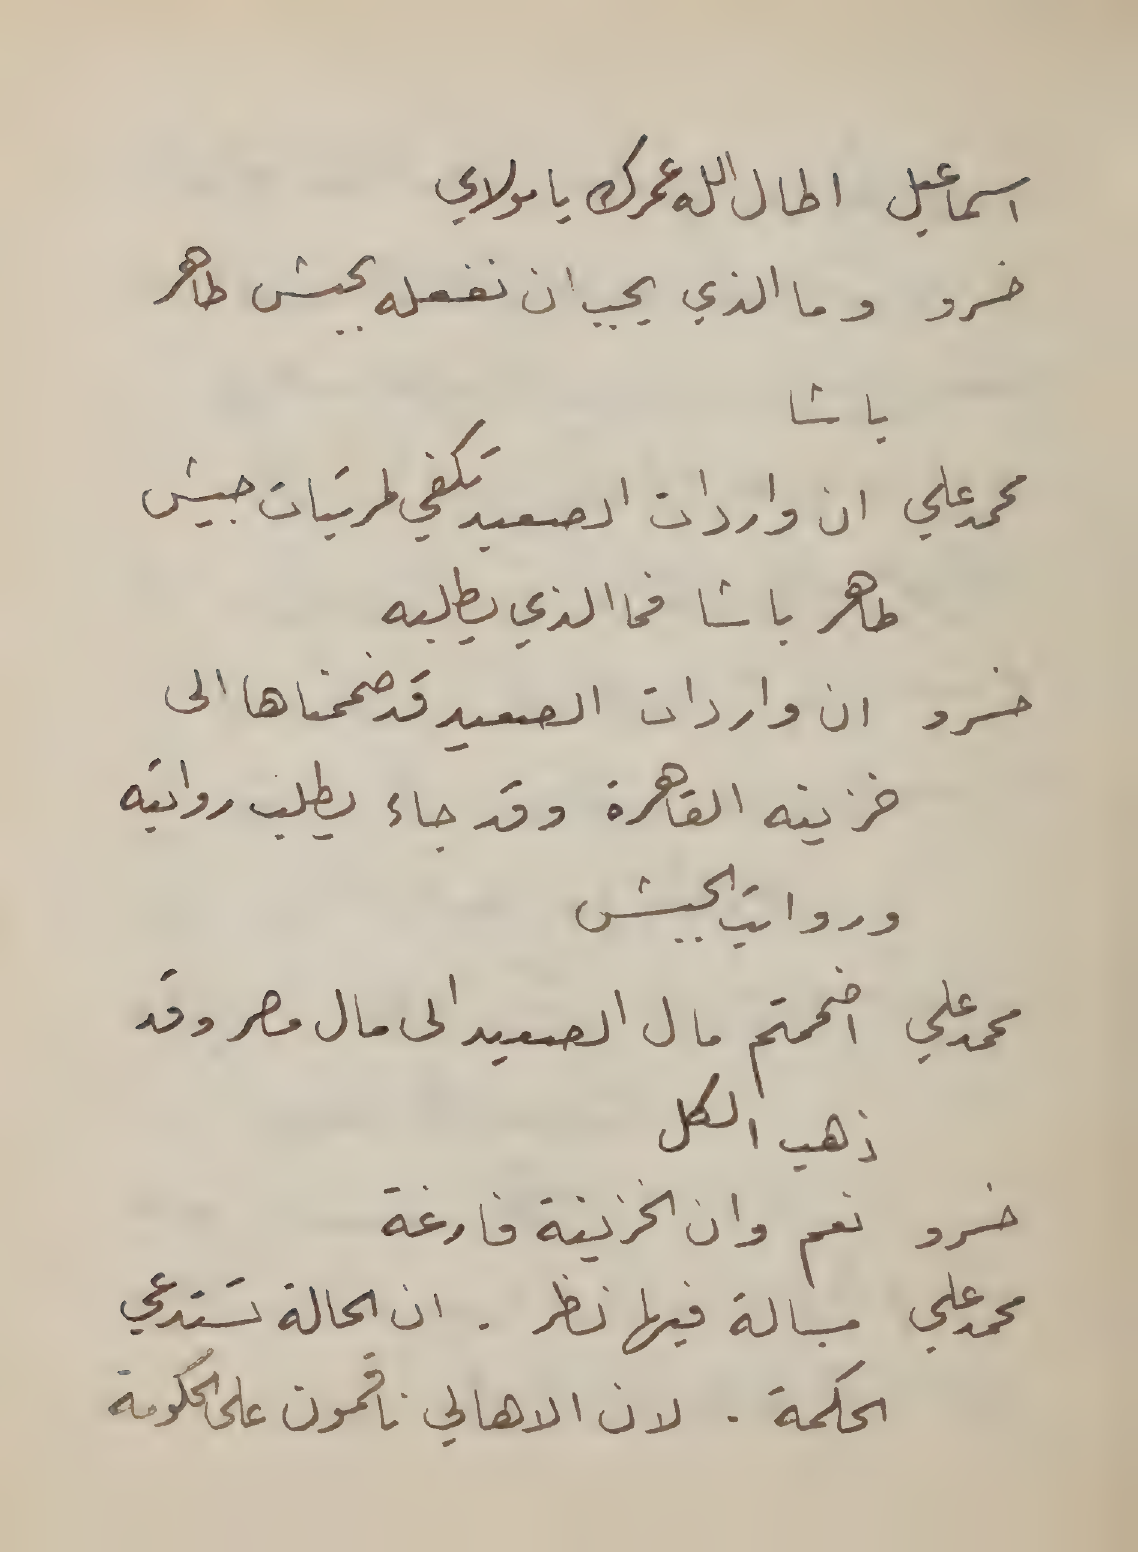 اسماعيل اطال الله عمرك يا مولاي
خسرو وما الذي يجب ان نفعله بجيش طاهر
باشا
محمد علي ان واردات الصعيد تكفي لمرتبات جيش
طاهر باشا فما الذي يطلبه
خسرو ان واردات الصعيد قد ضممناها الى
خزينه القاهرة وقد جاء يطلب رواتبه
ورواتب الجيش
محمد علي اضممتم مال الصعيد الى مال مصر وقد
ذهب الكل
خسرو نعم وان الخزينة فارغة
محمد علي مسالة فيها نظر . ان الحالة تستدعي
الحكمة . لان الاهالي ناقمون على الحكومة